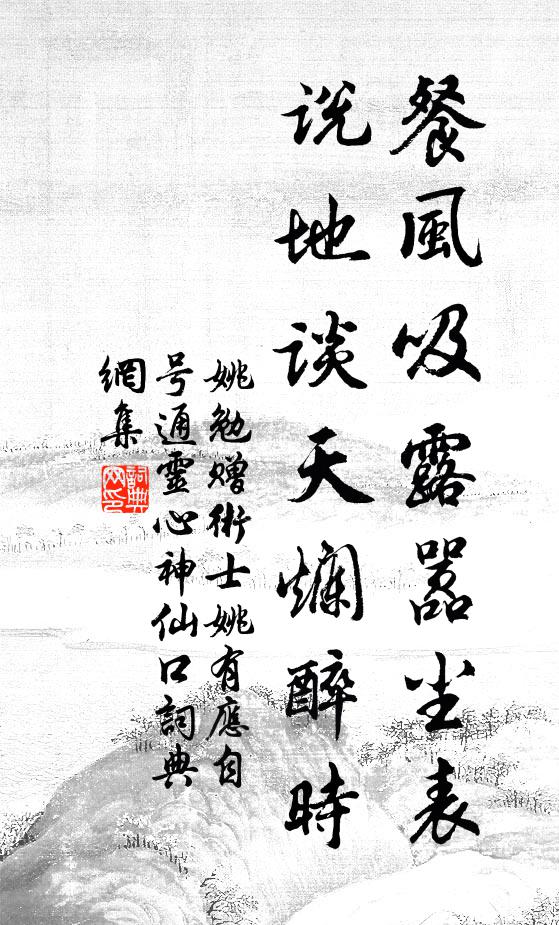 餐風吸露嚣尘表
说地谈天爛醉時
姚勉赠術士姚有應自
号通靈心神仙口詞典
網集
詞典
网印